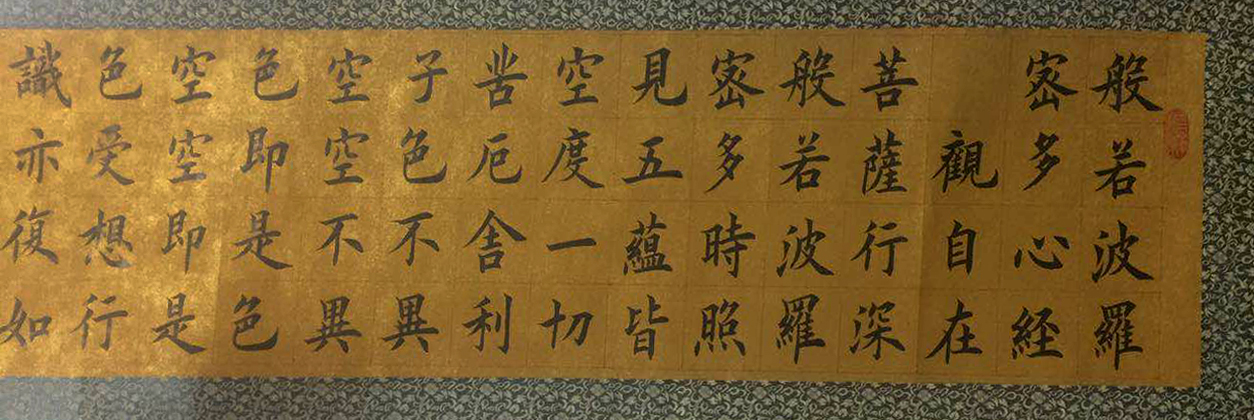 般若波羅
密多心経
觀自在
菩薩行深
般若波羅
密多時照
見五蘊皆
空度一切
苦厄舎利
子色不異
空空不異
色即是色
空空即是
色受想行
識亦復如